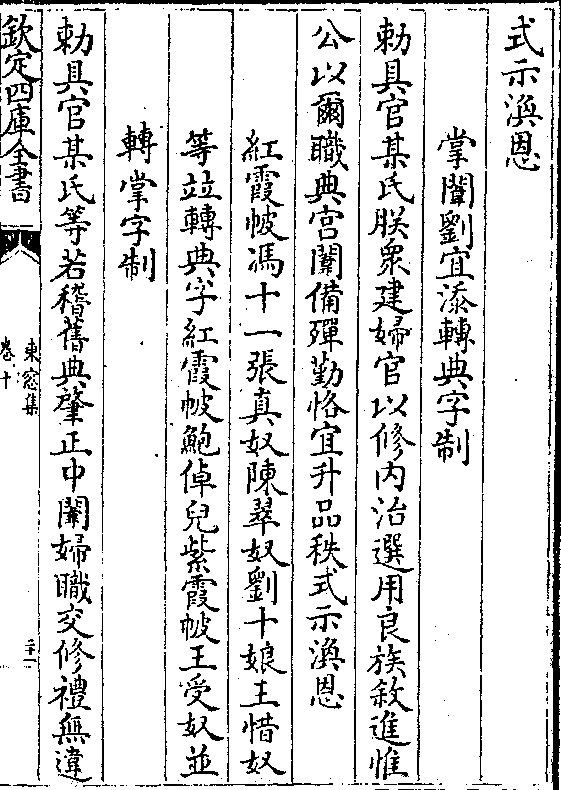 式示渙恩
掌闈劉宜添轉典字制
勅具官某氏朕衆建婦官以修内治選用良族敘進惟
公以爾職典宫闈備殫勤恪宜升品秩式示渙恩
紅霞帔馮十一張真奴陳翠奴劉十娘王惜奴
等竝轉典字紅霞帔鮑倬兒紫霞帔王受奴並
轉掌字制
勅具官某氏等若稽舊典肇正中闈婦職交修禮無違
欽定四庫全書
東窓集
卷十
二十一